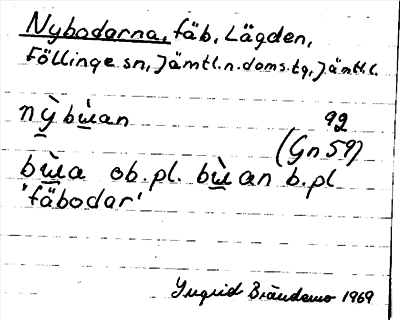 Nybodarna, fäb, Lägden,
Föllinge sn, Jämtl.n.doms.tg, Jämtl.l.
nỳ bùan 92
(Gn 59)
bùa ob.pl. bùan b.pl
'fäbodar'
Ingrid Brändemo 1969